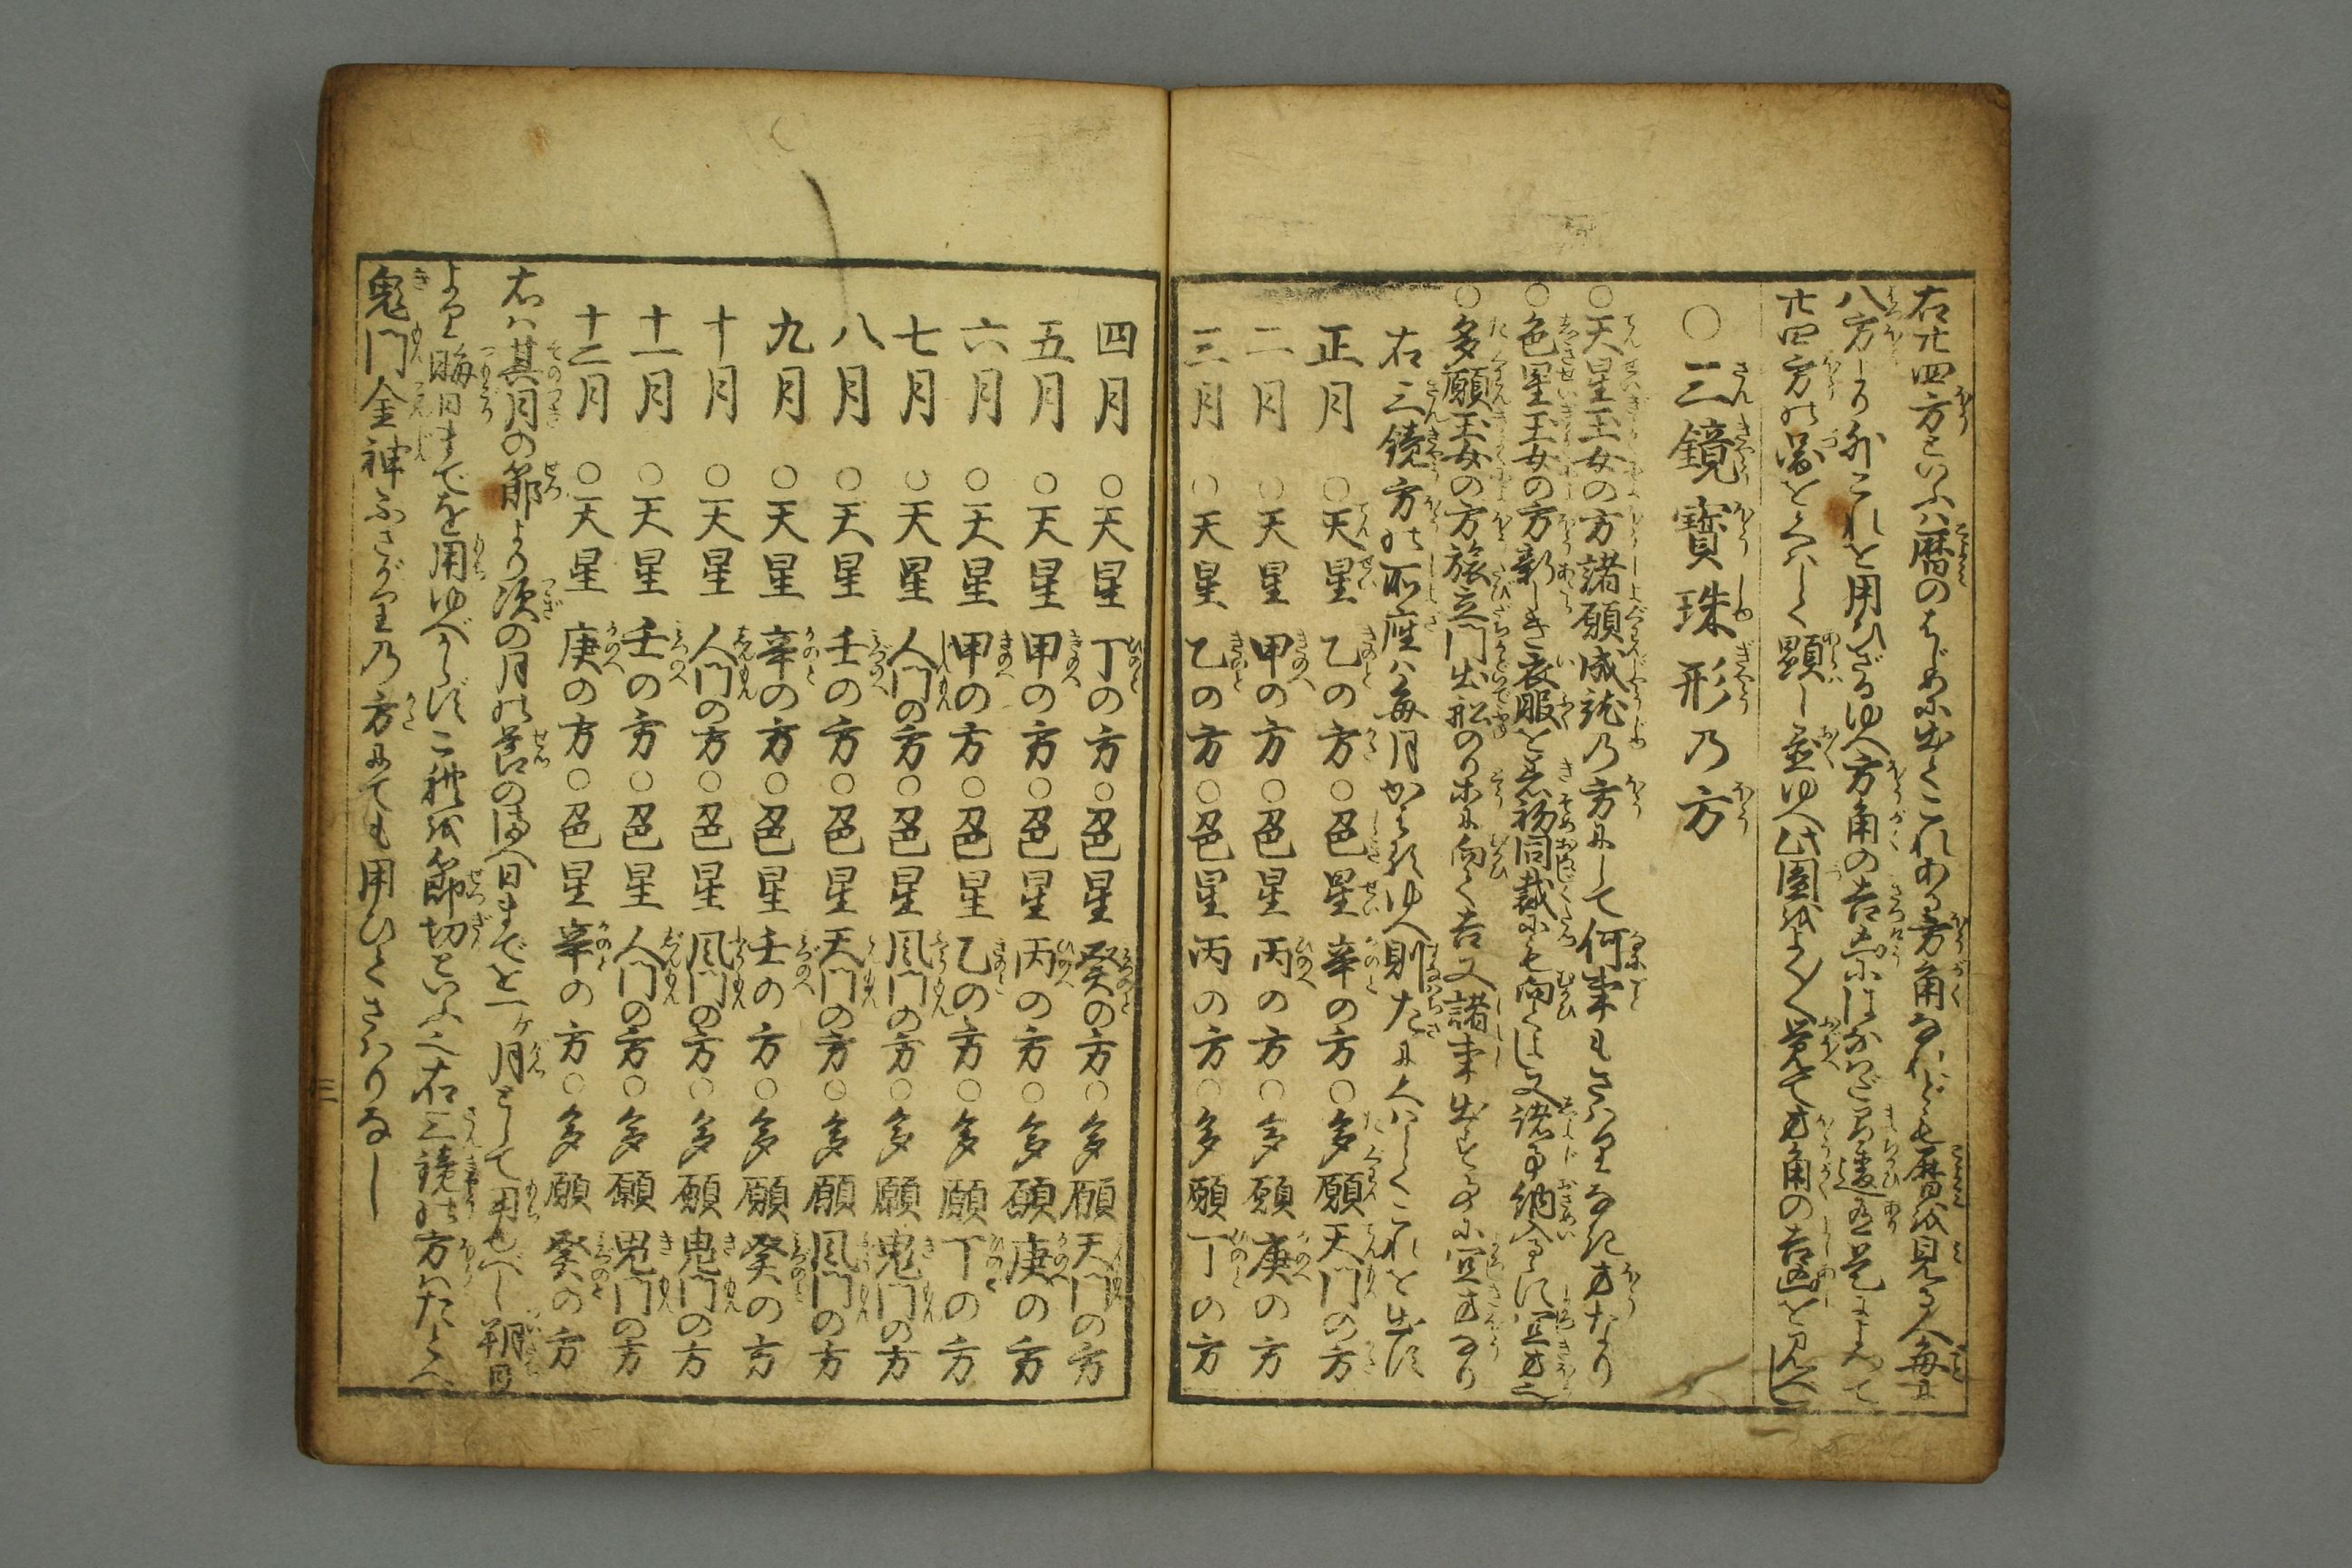 右廿四方といふハ暦のはじめに出てこれある方角なれども暦を見る人毎に
八方より外これを用ひざるゆへ方角の吉凶に
廿四方の図をくハしく顕し置ゆへ此図をよく〳〵覚て方角の吉凶を見べし
○三鏡寶珠形乃方
○天星玉女の方諸願成就乃方にして何事もさハりなき方なり
○色星玉女の方新しき衣服を着初同裁にも向てよし又諸事納入るに宜方也
○多願玉女の方旅立門出船のり等に向て吉又諸事出するに宜方なり
右三鏡方の所座ハ毎月かハるゆへ則左にくハしくこれを出す
正月 ○天星 乙の方○色星 辛の方○多願 天門の方
二月 ○天星 甲の方○色星 丙の方○多願 庚の方
三月 ○天星 乙の方○色星 丙の方○多願 丁の方
四月 ○天星 丁の方○色星 癸の方○多願 天門の方
五月 ○天星 甲の方○色星 丙の方○多願 庚の方
六月 ○天星 甲の方○色星 乙の方○多願 丁の方
七月 ○天星 人門の方○色星 風門の方○多願 鬼門の方
八月 ○天星 壬の方○色星 天門の方○多願 風門の方
九月 ○天星 辛の方○色星 壬の方○多願 癸の方
十月 ○天星 人門の方○色星 風門の方○多願 鬼門の方
十一月 ○天星 壬の方○色星 人門の方○多願 鬼門の方
十二月 ○天星 庚の方○色星 辛の方○多願 癸の方
右ハ其月の節より次の月の節の前日までを一ヶ月として用ゆべし朔日
より晦日までを用ゆべからずこれを節切といふ也右三鏡の方ハたとへ
鬼門金神ふさがり乃方にても用ひてさハりなし
三